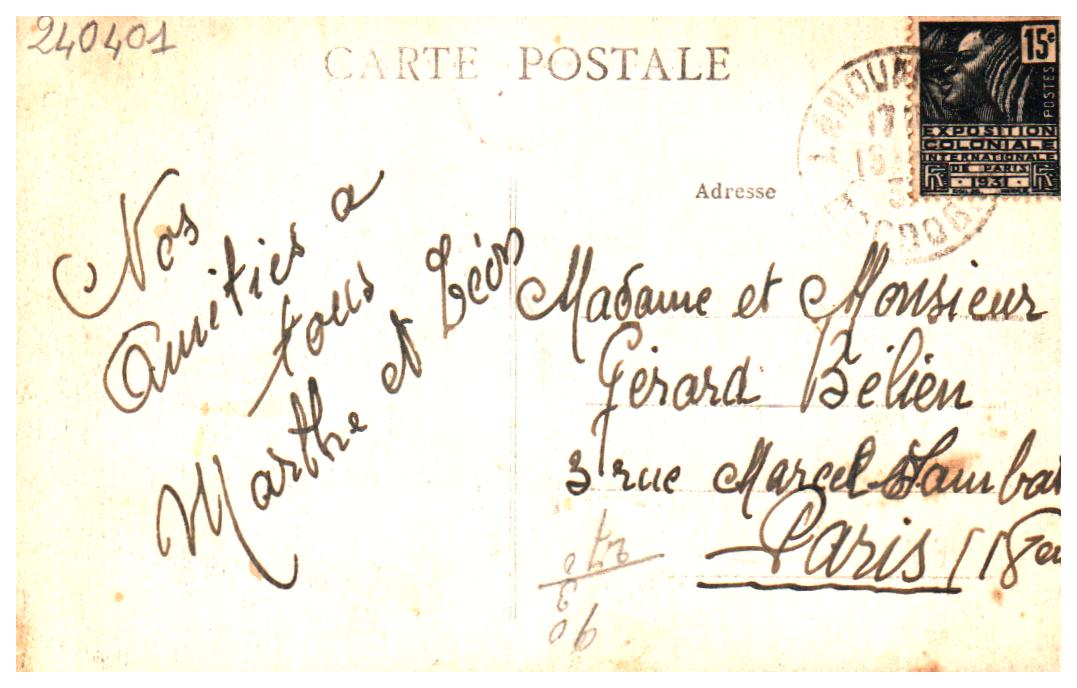 240401
CARTE POSTALE
15c
POSTES
EXPOSITION
COLONIALE
INTERNATIONALE
DE PARIS
1931
Adresse
Nos
Amitiés a
tous
Marthe et Léon
Madame et Monsieur
Gérard Bélien
3 rue Marcel
Paris (18